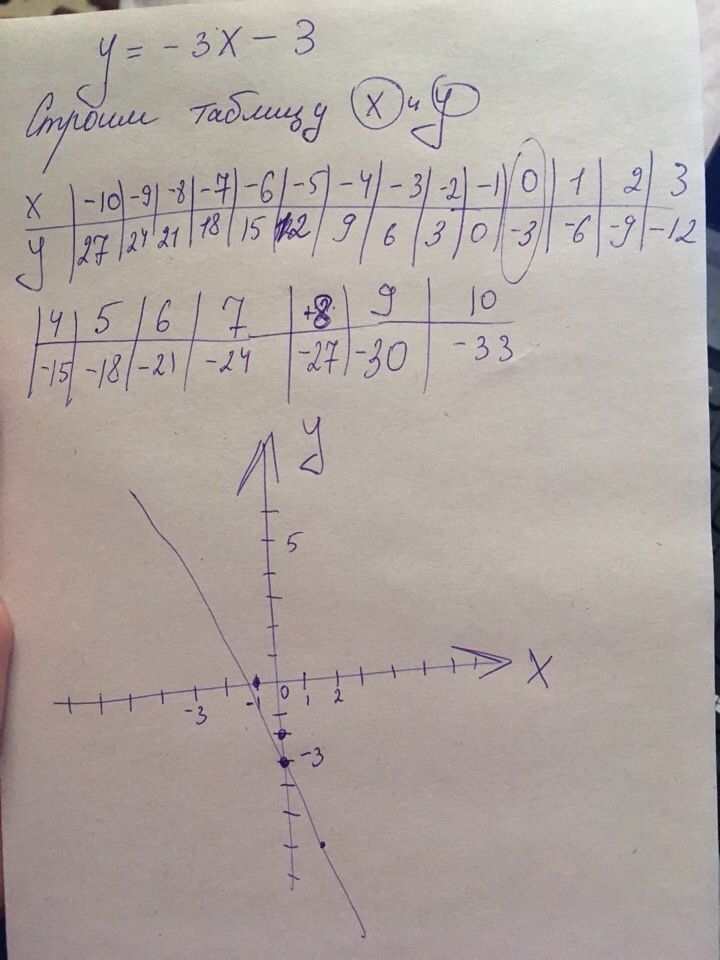 y = -3x - 3
Строим таблицу x и y
x | -10 | -9 | -8 | -7 | -6 | -5 | -4 | -3 | -2 | -1 | 0 | 1 | 2 | 3
y | 27 | 24 | 21 | 18 | 15 | 12 | 9 | 6 | 3 | 0 | -3 | -6 | -9 | -12
4 | 5 | 6 | 7 | +8 | 9 | 10
-15 | -18 | -21 | -24 | -27 | -30 | -33
y
5
x
-3 -1 0 1 2
-3